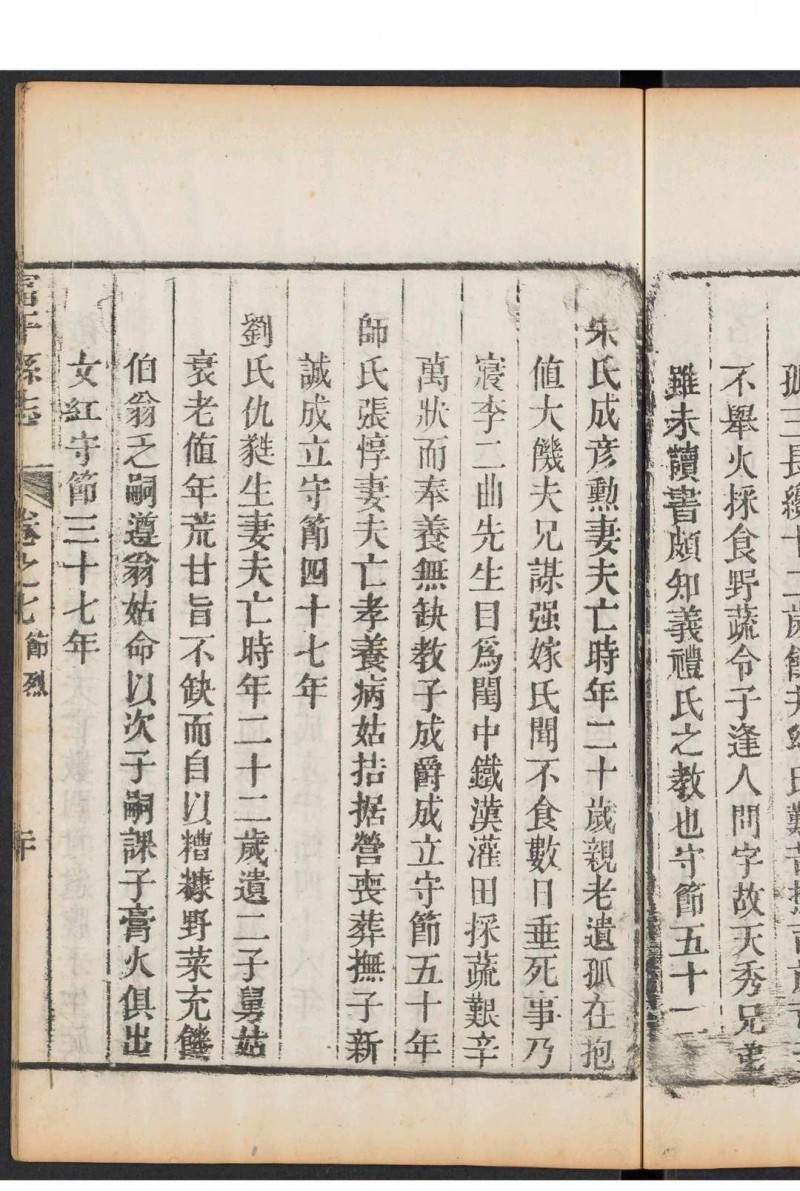 孤三長纔十二歲餘
不舉火採食野蔬令子逢人問字故天秀兄弟
雖未讀書頗知義禮氏之教也守節五十一
朱氏成彥勳妻夫亡時年二十歲親老遺孤在抱
値大饑夫兄謀强嫁氏聞不食數日垂死事乃
寢李二曲先生目爲閨中鐵漢灌田採蔬艱辛
萬狀而奉養無缺教子成爵成立守節五十年
師氏張惇妻夫亡孝養病姑拮据營喪葬撫子新
誠成立守節四十七年
劉氏仇甡生妻夫亡時年二十二歲遺二子舅姑
衰老値年荒甘旨不缺而自以糟糠野菜充饑
伯翁乏嗣遵翁姑命以次子嗣課子膏火俱出
女紅守節三十七年
富平縣志 卷之七 節烈